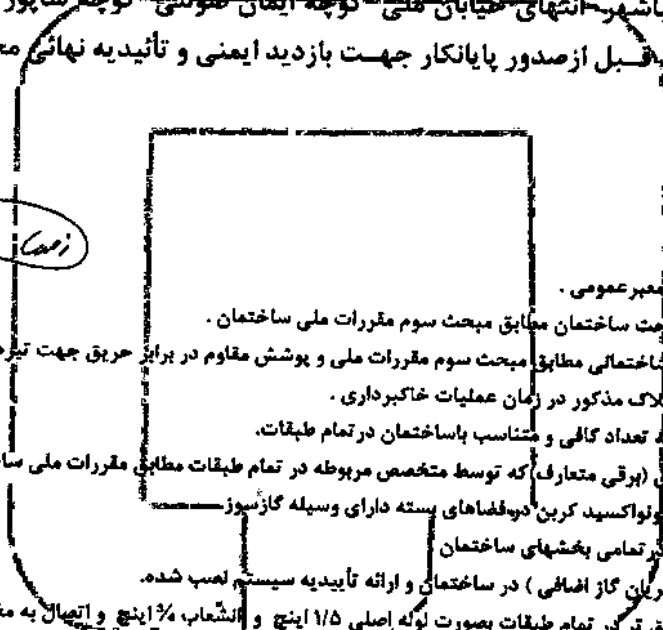 انتهای خیابان ملی کوچه ایمان کوچه شاپور
قبل ازصدور پایانکار جهت بازدید ایمنی و تأئیدیه نهائی
معبر عمومی .
ساختمان مطابق مبحث سوم مقررات ملی ساختمان .
ساختمانی مطابق مبحث سوم مقررات ملی و پوشش مقاوم در برابر حریق جهت
پلاک مذکور در زمان عملیات خاکبرداری .
تعداد کافی و متناسب باساختمان درتمام طبقات.
(برقی متعارف) که توسط متخصص مربوطه در تمام طبقات مطابق مقررات ملی
مونواکسید کربن در فضاهای بسته دارای وسیله گازسوز
در تمامی بخشهای ساختمان
جریان گاز اضافی ) در ساختمان و ارائه تأییدیه سیستم نصب شده.
تر در تمام طبقات بصورت لوله اصلی ۱/۵ اینچ و انشعاب ¾ اینچ و اتصال به